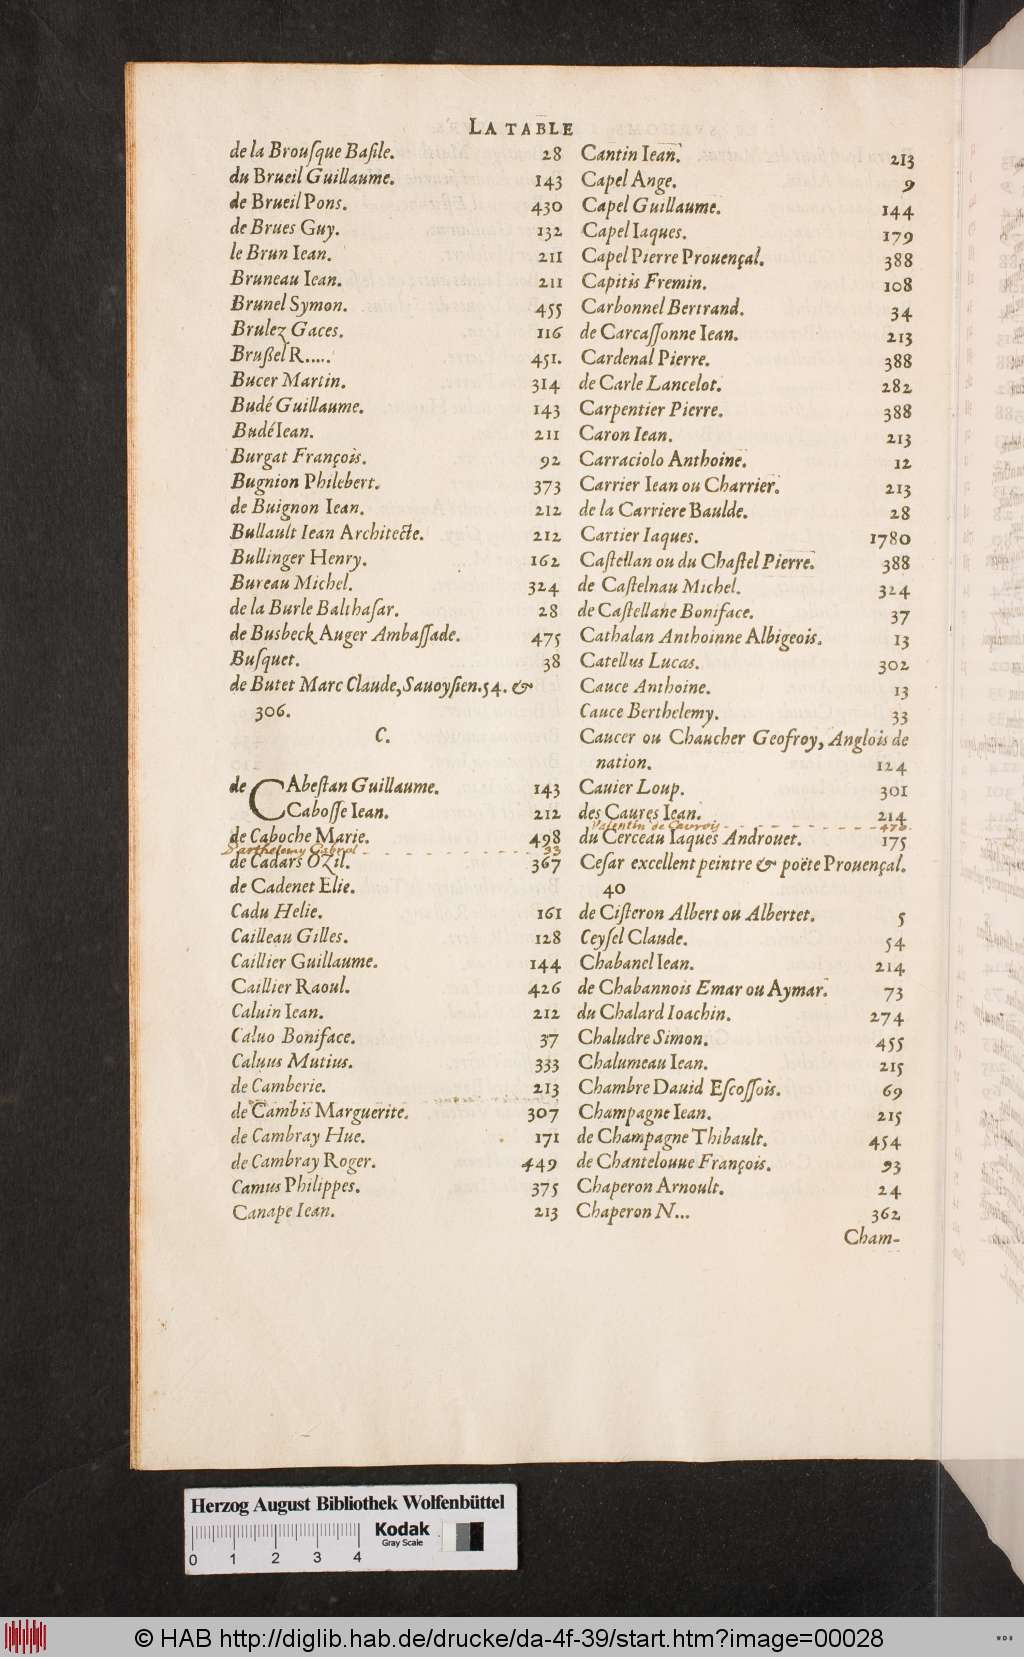 LA TABLE
de la Brouſque Baſile. 28
du Brueil Guillaume. 143
de Brueil Pons. 430
de Brues Guy. 132
le Brun Iean. 211
Bruneau Iean. 211
Brunel Symon. 455
Brulez Gaces. 116
Brußel R..... 451.
Bucer Martin. 314
Budé Guillaume. 143
Budé Iean. 211
Burgat François. 92
Bugnion Philebert. 373
de Buignon Iean. 212
Bullault Iean Architecte. 212
Bullinger Henry. 162
Bureau Michel. 324
de la Burle Balthaſar. 28
de Busbeck Auger Ambaſſade. 475
Buſquet. 38
de Butet Marc Claude, Sauoyſien. 54. &
306.
C.
de CAbeſtan Guillaume. 143
Caboſſe Iean. 212
de Caboche Marie. 498
Barthelemy Cabrol 33
de Cadars OZil. 367
de Cadenet Elie.
Cadu Helie. 161
Cailleau Gilles. 128
Caillier Guillaume. 144
Caillier Raoul. 426
Caluin Iean. 212
Caluo Boniface. 37
Caluus Mutius. 333
de Camberie. 213
de Cambis Marguerite. 307
de Cambray Hue. 171
de Cambray Roger. 449
Camus Philippes. 375
Canape Iean. 213
Cantin Iean. 213
Capel Ange. 9
Capel Guillaume. 144
Capel Iaques. 179
Capel Pierre Prouençal. 388
Capitis Fremin. 108
Carbonnel Bertrand. 34
de Carcaſſonne Iean. 213
Cardenal Pierre. 388
de Carle Lancelot. 282
Carpentier Pierre. 388
Caron Iean. 213
Carraciolo Anthoine. 12
Carrier Iean ou Charrier. 213
de la Carriere Baulde. 28
Cartier Iaques. 1780
Caſtellan ou du Chaſtel Pierre. 388
de Caſtelnau Michel. 324
de Caſtellane Boniface. 37
Cathalan Anthoinne Albigeois. 13
Catellus Lucas. 302
Cauce Anthoine. 13
Cauce Berthelemy. 33
Caucer ou Chaucher Geofroy, Anglois de
nation. 124
Cauier Loup. 301
des Caures Iean. 214
Valentin de Caurois 470
du Cerceau Iaques Androuet. 175
Ceſar excellent peintre & poëte Prouençal.
40
de Ciſteron Albert ou Albertet. 5
Ceyſel Claude. 54
Chabanel Iean. 214
de Chabannois Emar ou Aymar. 73
du Chalard Ioachin. 274
Chaludre Simon. 455
Chalumeau Iean. 215
Chambre Dauid Eſcoſſois. 69
Champagne Iean. 215
de Champagne Thibault. 454
de Chantelouue François. 93
Chaperon Arnoult. 24
Chaperon N... 362
Cham-
Herzog August Bibliothek Wolfenbüttel
Kodak
Gray Scale
0 1 2 3 4
© HAB http://diglib.hab.de/drucke/da-4f-39/start.htm?image=00028